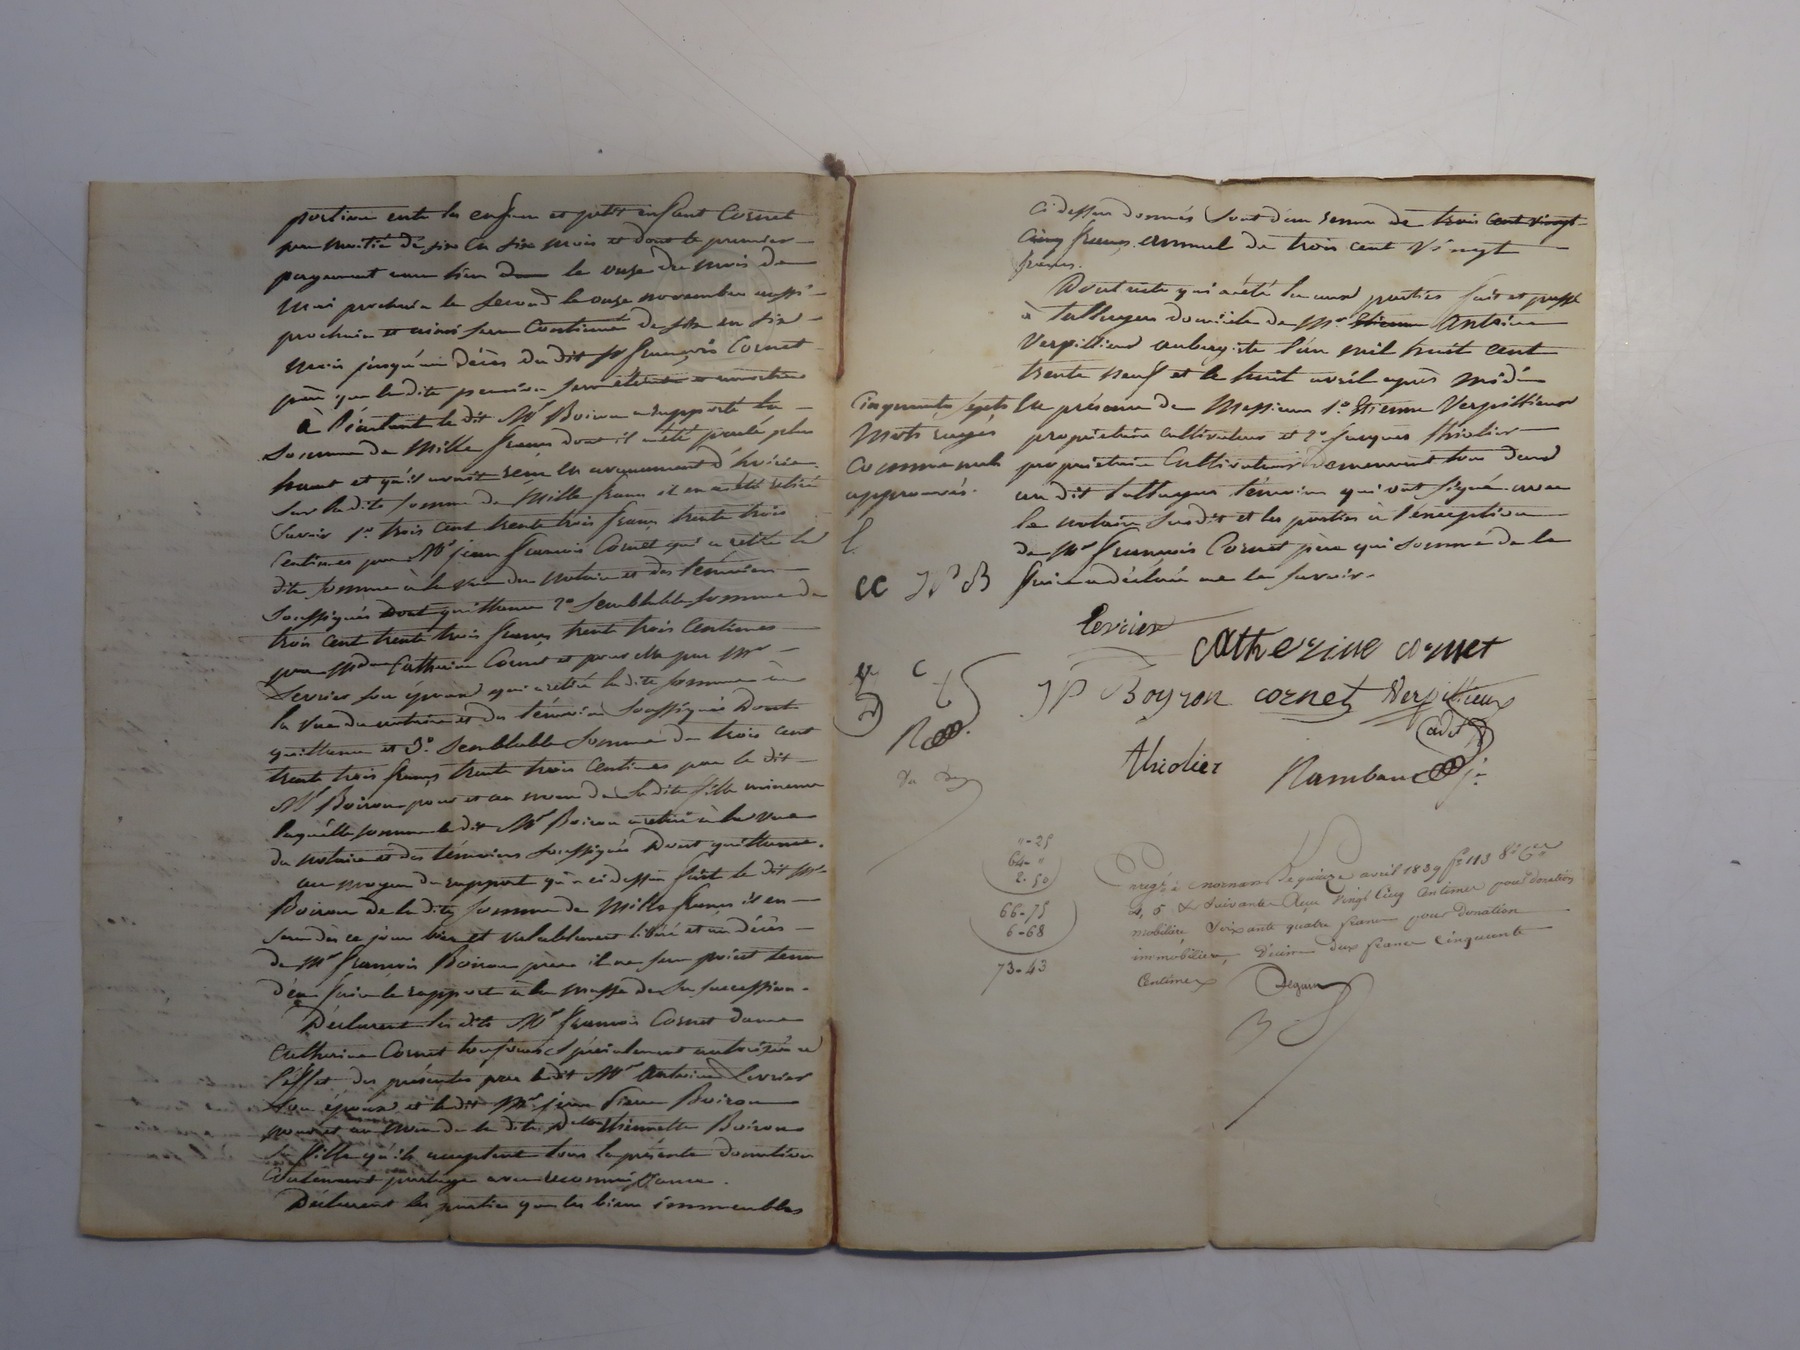 portion entre les enfans et petit enfant Cornet
par moitié de six en six mois et dont le premier
payement aura lieu dans le onze du mois de
mai prochain le second le onze novembre aussi
prochain et ainsi sera Continué de six en six
mois jusqu'au décès du dit Sr françois Cornet
père que la dite pension sera éteinte et amortie
à l'instant le dit Mr Boiron a rapporté la
somme de Mille francs dont il a été parlé plus
haut et qu'il avait reçu en avancement d'hoirie
sur la dite somme de Mille francs il en a été retiré
savoir 1o trois cent trente trois francs trente trois
Centimes par Mr jean françois Cornet qui a retiré la
dite somme à la vue du notaire et des témoins
soussignés Dont quittance 2o Semblable somme de
trois cent trente trois francs trente trois Centimes
par Mme Catherine Cornet et pour elle par Mr
Levrier son époux qui a retiré la dite somme à
la vue du notaire et des témoins soussignés Dont
quittance et 3o Semblable somme de trois cent
trente trois francs trente trois Centimes par le dit
Mr Boiron pour et au nom de la dite fille mineure
laquelle somme le dit Mr Boiron a retiré à la vue
du notaire et des témoins soussignés Dont quittance.
au moyen du rapport qu'a ci dessus fait le dit Mr
Boiron de la dite somme de Mille francs il en
sera dès ce jour bien et valablement libéré et au décès
de Mr françois Boiron père il ne sera point tenu
d'en faire le rapport à la masse de sa succession.
Déclarent les dits Mr françois Cornet dame
Catherine Cornet toujours spécialement autorisée à
l'effet des présentes par le dit Mr Antoine Levrier
son époux et le dit Mr jean Pierre Boiron
pour et au nom de la dite Delle Etiennette Boiron
sa fille qu'ils acceptent tous la présente donation
Contenant partage avec reconnaissance.
Déclarent les parties que les biens immeubles
Ci dessus donnés sont d'un revenu de trois cent vingt
Cinq francs annuel de trois cent vingt
francs.
Dont acte qui a été lu aux parties fait et passé
à Talluyers domicile de Mr Etienne Antoine
Verpilleux aubergiste l'an mil huit cent
trente neuf et le huit avril après midi
En présence de Messieurs 1o Etienne Verpilleux
propriétaire Cultivateur et 2o Jacques Thiolier
propriétaire Cultivateur demeurant tous deux
au dit Talluyers témoins qui ont signé avec
le notaire susdit et les parties à l'exception
de Mr françois Cornet père qui sommé de le
faire a déclaré ne le savoir.
Cinquante sept
Mots rayés
comme nuls
approuvés.
L
CC JP B
Levrier
Catherine cornet
JP Boyron cornet Verpilleux
cadet
Thiolier Rambaud jne
"-25
64-"
2-50
66-75
6-68
73-43
Enregé à Mornant le quinze avril 1839 fo 113 Vo Ces
4, 5 & Suivantes Reçu Vingt Cinq Centimes pour donation
mobilière, Soixante quatre francs pour Donation
immobilière, Décime deux francs Cinquante
Centimes